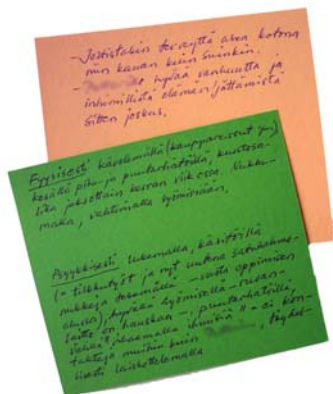 - Jostistakin terveyttä asua kotona
niin kauan kuin suinkin.
- hyvää vanhuutta ja
inhimillistä elämän/jättämistä
sitten joskus.
Fyysisesti kävelemällä (kauppareissut ym)
kesällä piha- ja puutarhatöillä, kuntosa-
lilla jaksottain kerran viikossa. Nukku-
malla, vähtimällä syömisiään.
Psyykkisesti lukemalla, käsitöillä
(= tilkkutyöt ja nyt uutena satuhahmo-
nukkeja tekemällä - vasta oppimisen
alussa), hyvällä syömisellä - ruuan-
laitto on hauskaa -, puutarhatöillä,
"ei kon-
takteja muihin kuin
lisesti laiskottelemalla